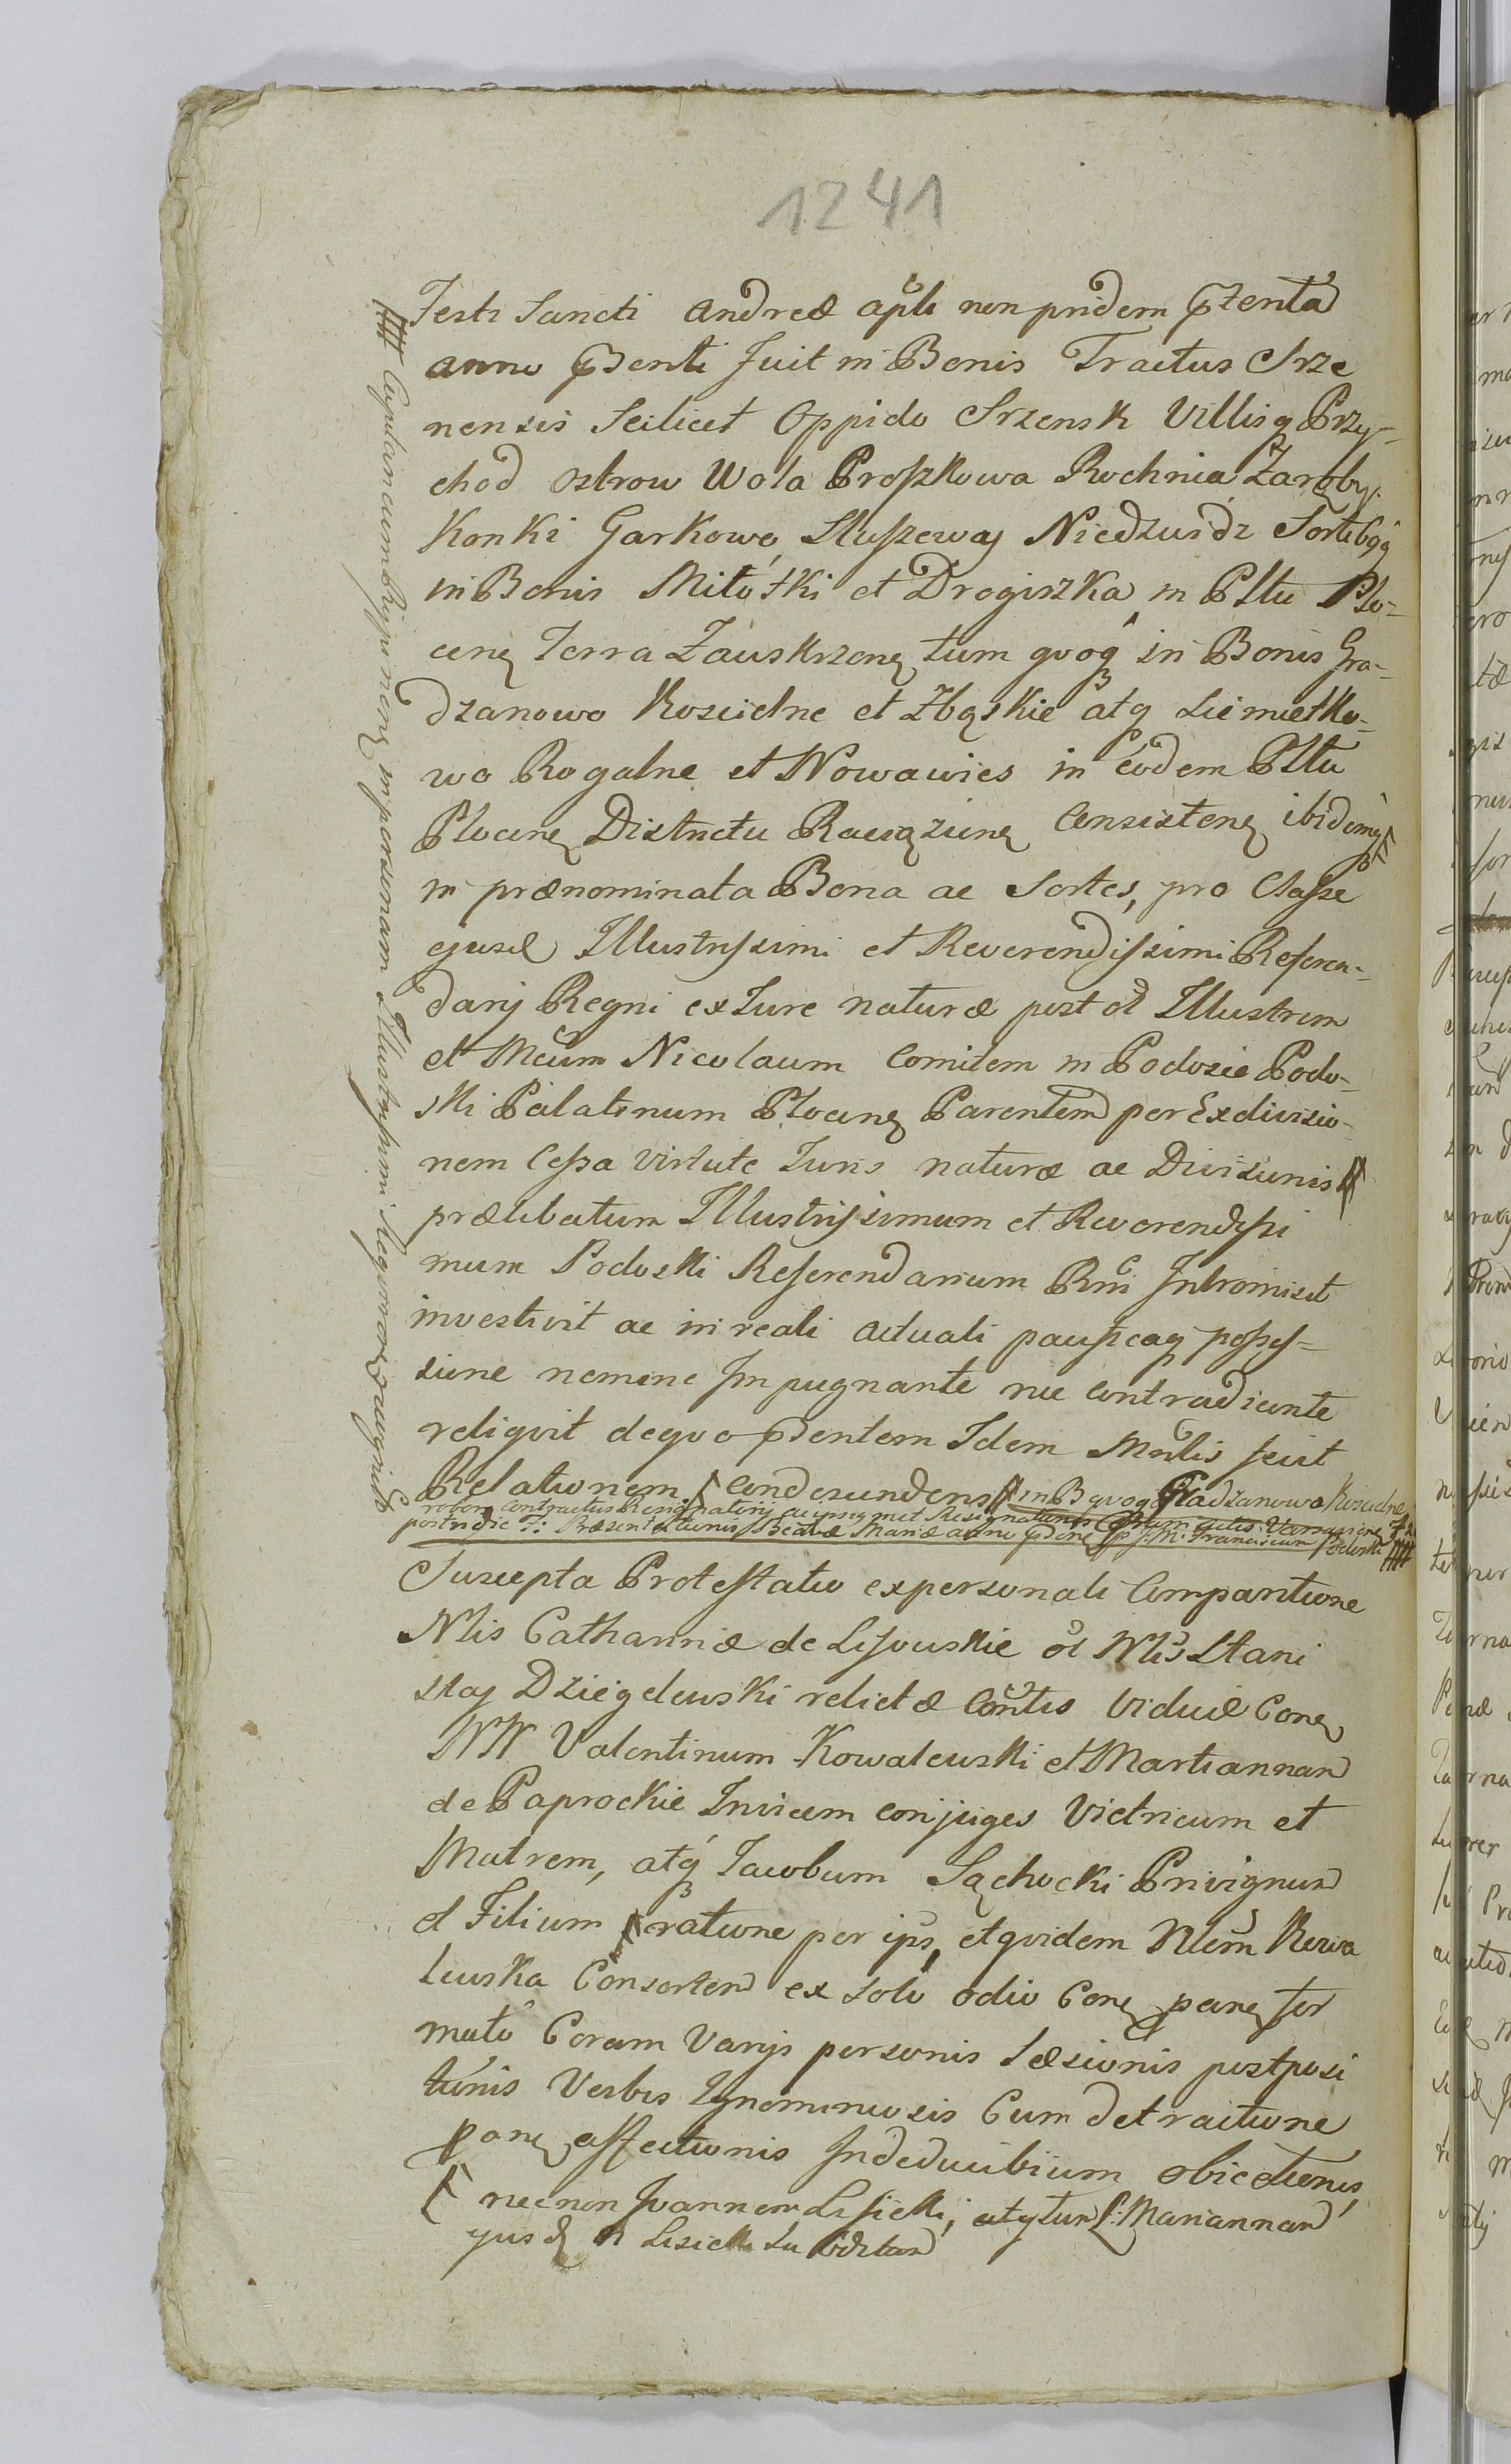 1241
Festi Sancti Andreæ apli non pridem pszenta
anno pszenti fuit in Bonis Tractus Srze
nensis Scilicet Oppido Srzensk Villisq Przy-
chod Ostrow Wola Proszkowa Ruchnia Zaręby
Konki Garkowo, Słuszewaj Niedzwidz Sortibq
in Bonis Miłotki et Drogiszka in Psttu Plo-
cen Terra Zawskrzen tum quoq in Bonis Gra-
dzanowo Koscielne et Zbęskie atq Ziemietko-
wo Rogalne et Nowawies in eodem Psttu
Plocen Districtu Raciązien Consisten ibidemq
in prænominata Bona ac Sortes, pro Classe
ejusd Illustrissimi et Reverendissimi Referen-
darij Regni ex Jure naturæ post ol Illustrem
et Mcum Nicolaum Comitem in Podosie Podo-
ski Palatinum Plocen Parentem per Exdivisio-
nem Cessa virtute Juris naturæ ac Divisionis
prælibatum Illustrissimum et Reverendissi
mum Podoski Referendarium Rni Intromisit
investivit ac in reali actuali pacificaq posses-
sione nemine Impugnante nec contradicente
reliquit de quo pszentem Idem Mnlis fecit
Relationem Condescendens in B quoq Gradzanowo Koscielne
robore Contractus Resignatorij ac ipsiusmet Resignationis Castrum actis Varsavien
postridie F: Præsentationis Beatæ Mariæ anno pszen p M. Franciscum Podoski
Suscepta Protestatio ex personali Comparitione
Nlis Catharinæ de Lisowskie ol Nlis Stani
slaj Dziegelewski relictæ Contis viduæ Con
NN Valentinum Kowalewski et Martiannam
de Paprockie Invicem conjuges Vitricum et
Matrem, atq Jacobum Sąchocki Privignum
et Filium ratione per ips, et quidem Nlem Kowa
lewska Consortem ex solo odio Con pane for
mato Coram Varijs personis Læsionis postposi
tionis Verbis Ignominiosis Cum detractione
pane affectionis Indeducibiium obiectionis
necnon Joannem Lisicki, atq tum f: Mariannam
ejusd N Lisicki
in personam Illustrissimi